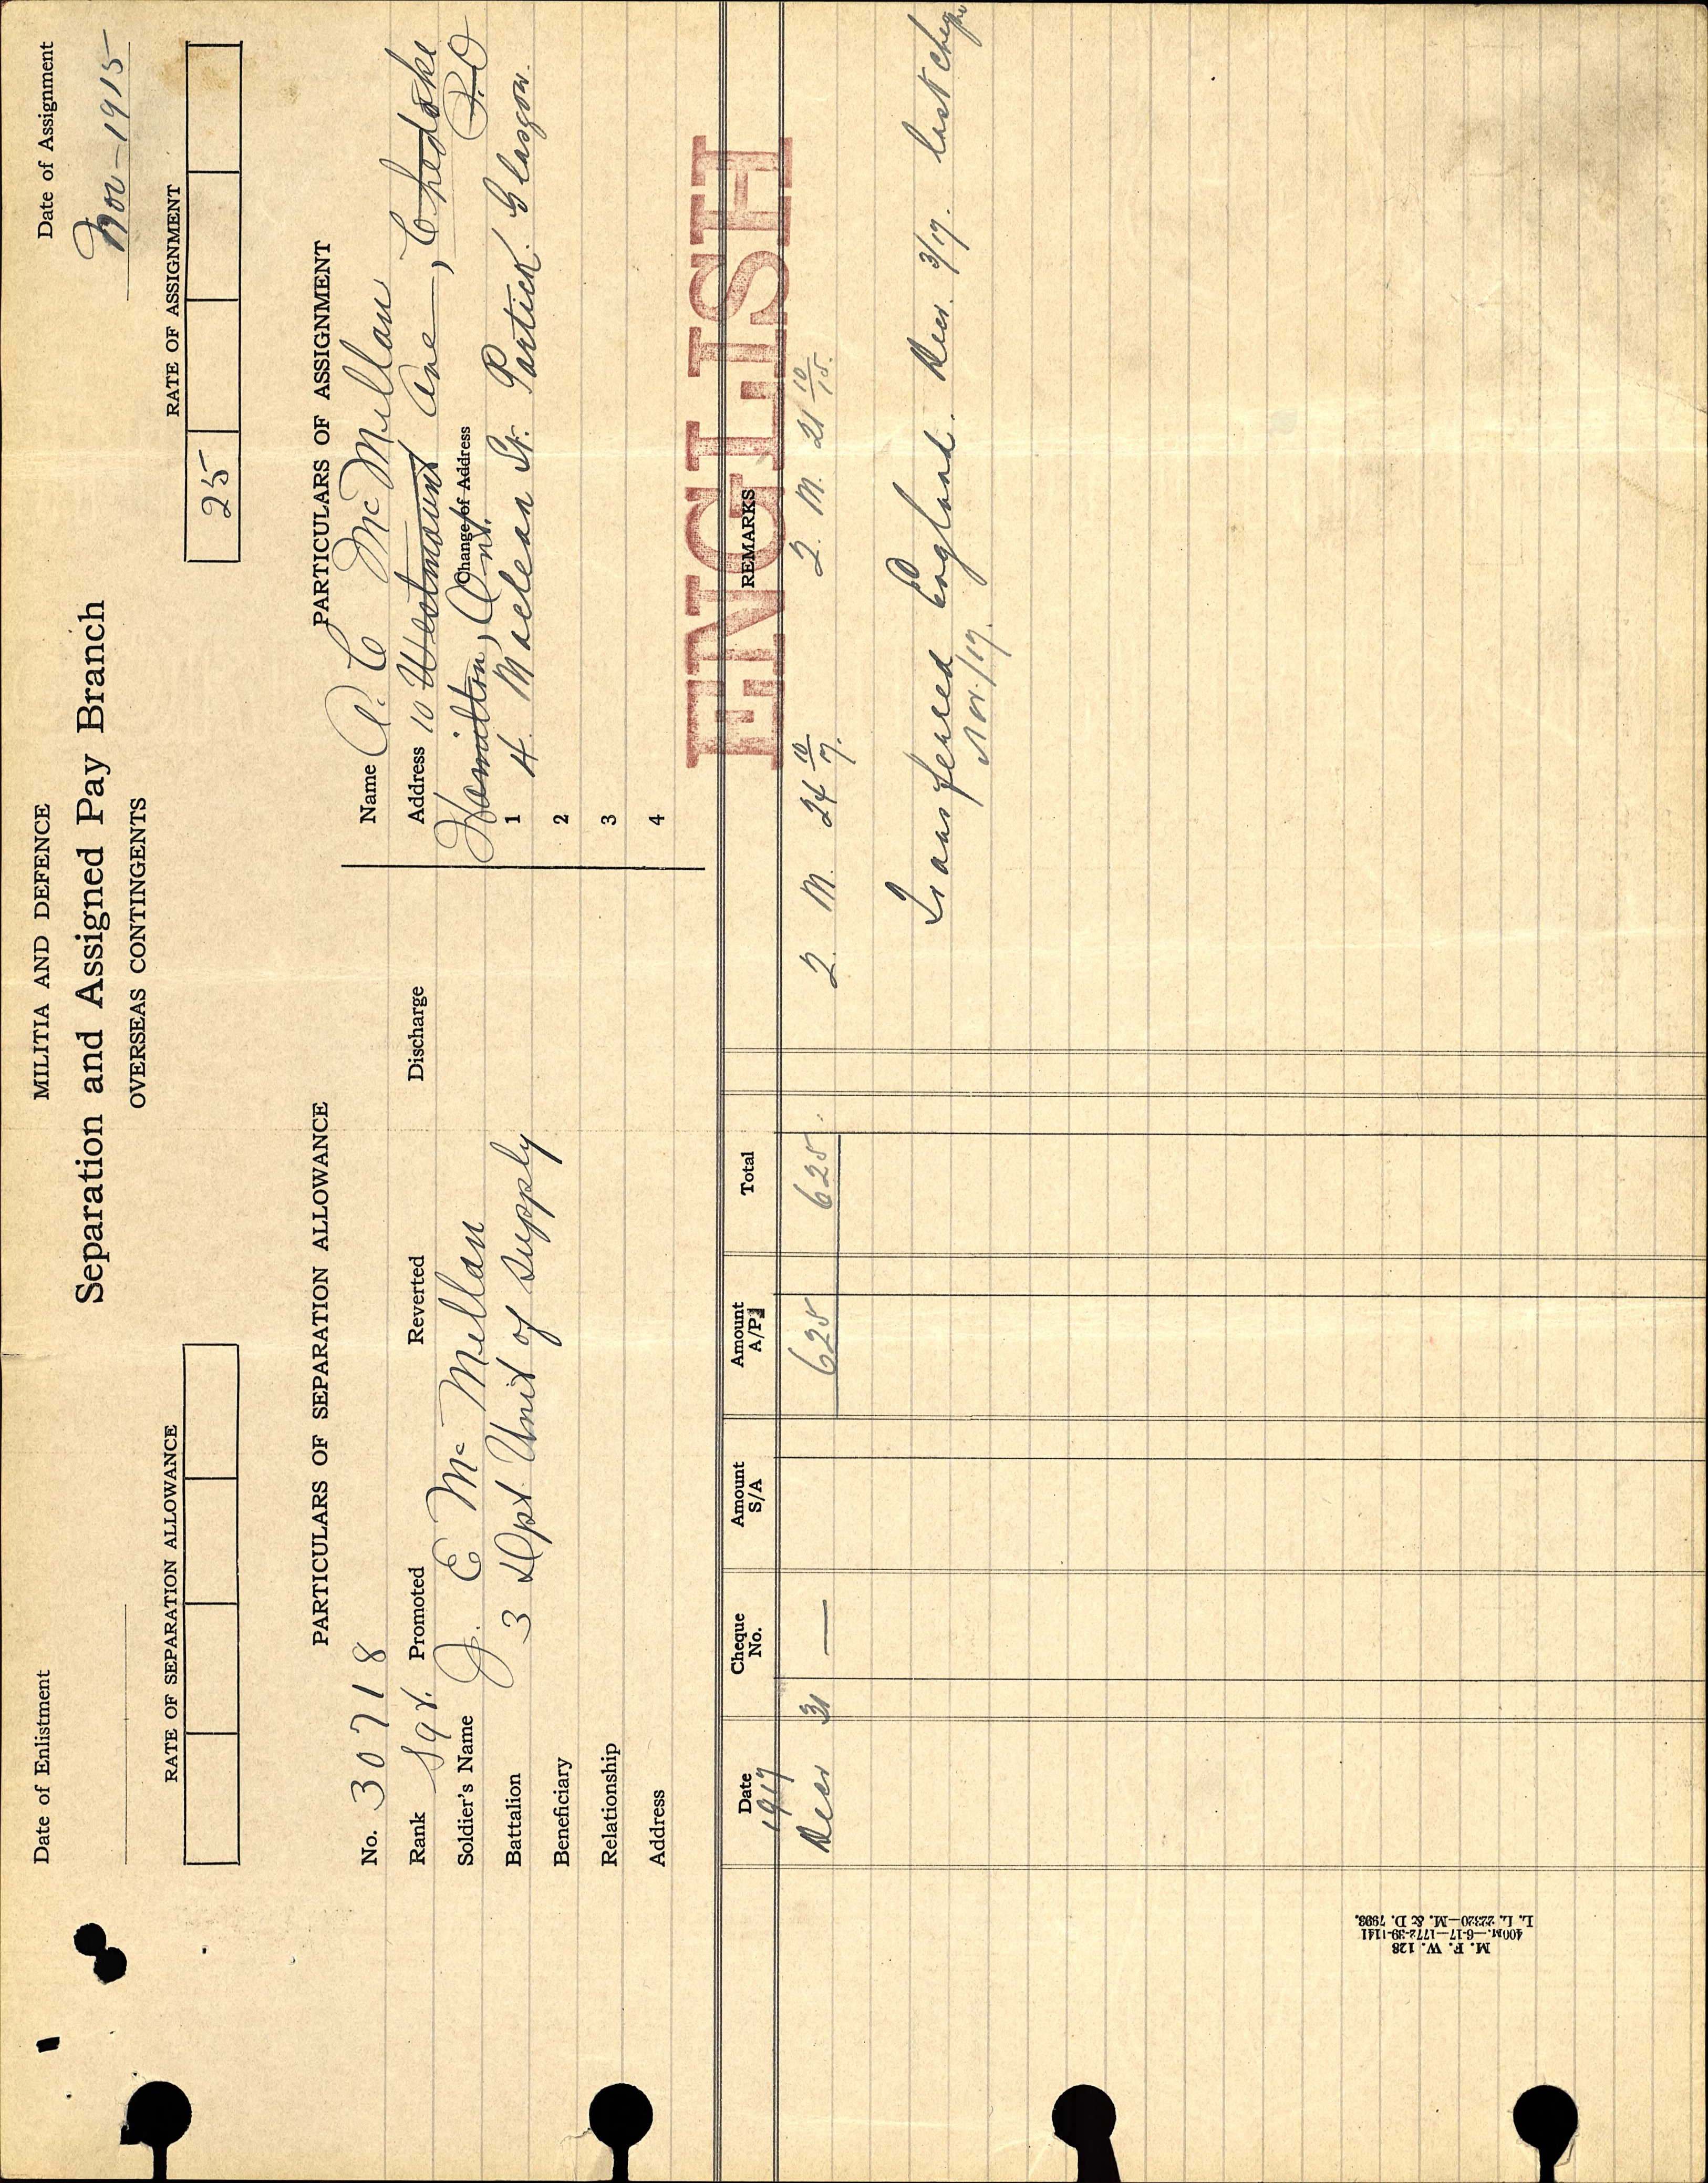 MILITIA AND DEFENCE
Separation and Assigned Pay Branch
OVERSEAS CONTINGENTS
Date of Enlistment
Date of Assignment
Nov-1915
RATE OF SEPARATION ALLOWANCE
RATE OF ASSIGNMENT
25
PARTICULARS OF SEPARATION ALLOWANCE
No. 30718
Rank Sgt. Promoted Reverted Discharge
Soldier's Name J. E McMillan
Battalion 3 Dpt Unit of Supply
Beneficiary
Relationship
Address
PARTICULARS OF ASSIGNMENT
Name A. C McMillan
Address 10 Westmount Ave, Chedoke
Hamilton, Ont. P.O
Change of Address
1 4 Maclean St. Partick. Glasgow.
2
3
4
ENGLISH
Date Cheque No. Amount S/A Amount A/P Total REMARKS
1917
Dec 31 — 625 625 2. M. 24 10/17. 2. M. 21 10/15.
Transferred England. Dec. 3/17. last cheque
Nov./17.
M. F. W. 128
400M.—6-17—1772-39-1141
L. L. 22320—M. & D. 7993.